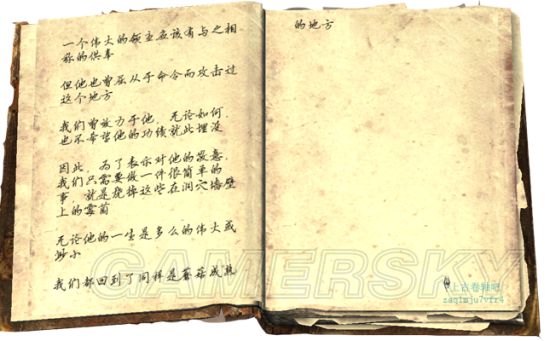 一个伟大的领主应该有与之相
称的供奉
但他也曾屈从于命令而攻击过
这个地方
我们曾效力于他，无论如何，
也不希望他的功绩就此埋没
因此，为了表示对他的敬意，
我们只需要做一件很简单的
事，就是烧掉这些在洞穴墙壁
上的蘑菇
无论他的一生是多么的伟大或
渺小
我们都回到了同样是蘑菇成熟
的地方
GAMERSKY
上古卷轴吧
zaqlmju7vfr4